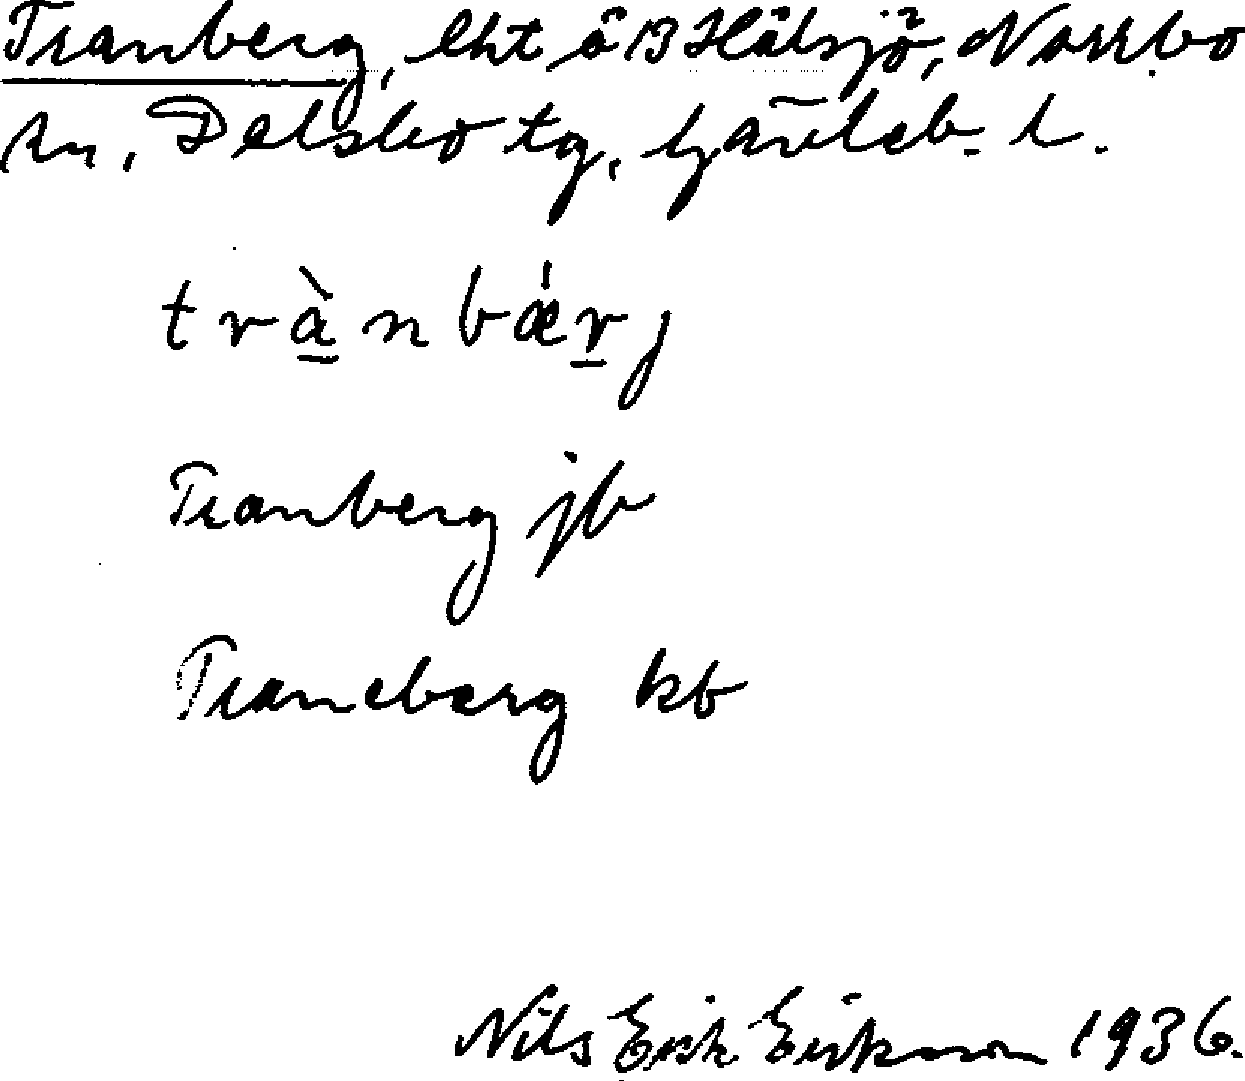 Tranberg, lht å 13 Hålsjö, Norrbo
sn, Delsbo tg, Gävleb. l.
trànbǽrj
Tranberg jb
Traneberg kb
Nils Erik Erikson 1936.